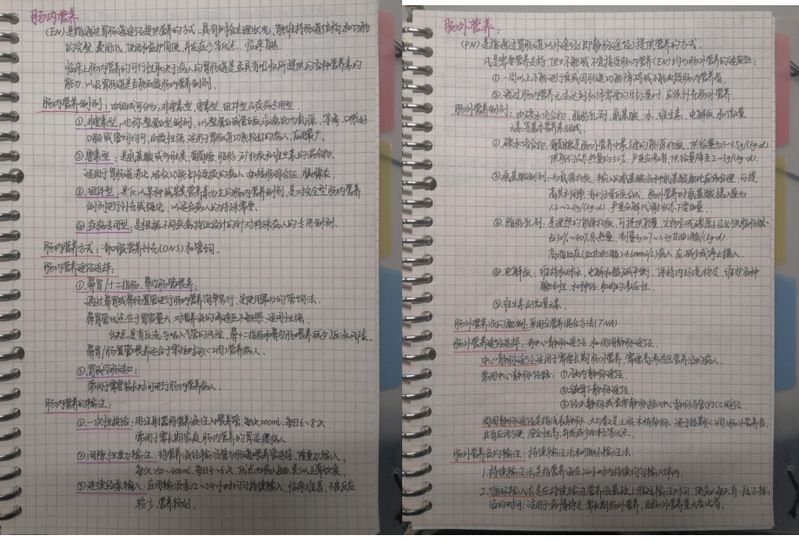 肠内营养
(EN)是指通过胃肠道途径提供营养的方式,具有符合生理状况,能维持肠道结构和功能
的完整,费用低,使用和监护简便,并发症少等优点,临床首选
临床上肠内营养的可行性取决于病人的胃肠道是否具有吸收所提供的各种营养素的
能力,以及胃肠道是否能耐受肠内营养制剂.
肠内营养制剂:
①非要素型,也称整蛋白型制剂,
口服或管饲均可,适用于胃肠道功能较好的病人,应用最广.
②要素型:是氨基酸或多肽类,葡萄糖,脂肪,矿物质和维生素的混合物.
③组件型:是仅以某种或某类营养素为主的肠内营养制剂,是对完全型肠内营养
制剂进行补充或强化,以适合病人的特殊需要.
④疾病专用型:是根据不同疾病特征设计的针对特殊病人的专用制剂.
肠内营养方式:有口服营养补充(ONS)和管饲.
肠内营养途径选择:
①鼻胃/十二指肠,鼻空肠管喂养:
通过鼻胃或鼻肠置管进行肠内营养简单易行,是使用最多的管饲法.
鼻胃管优点在于胃容量大,对营养液的渗透压不敏感,适用性强.
缺点:是有反流与吸入气管的风险,
鼻胃/肠置管喂养适合于需短时间(<2周)营养病人.
②胃或空肠造口:
常用于需要较长时间进行肠内营养病人.
肠内营养的输注:
①一次性投给:用注射器将营养液注入喂养管,每次200ml,每日6~8次
常用于需长期家庭肠内营养的胃造瘘病人
②间隙性重力输注:将营养液经输注管与喂养管连接,借重力输入,
每次250~400ml,每日4~6次,
③连续经泵输入:应用输液泵12~24小时均匀持续输入,临床推荐,不良反应
较少,营养较好.
肠外营养:
(PN)是指通过胃肠道以外途径(即静脉途径)提供营养的方式.
凡是需要营养支持,但又不能或不宜接受肠内营养(EN)均为肠外营养的适应症:
①一周以上不能进食或因胃肠道功能障碍或不能耐受肠内营养者.
②通过肠内营养无法达到机体需要的目标量时,应该补充肠外营养.
肠外营养制剂:由碳水化合物,脂肪乳剂,氨基酸,水,维生素,电解质,和微量
元素等基本营养素组成.
①碳水化合物:葡萄糖是肠外营养中最主要的能源物质,供给量为3~3.5g/(kg·d)
供能约占总热量的50%,严重应激者,供给量降至2~3g/(kg·d).
②氨基酸制剂:
1.2~2.0g/(kg·d),严重分解代谢状态下需增量.
③脂肪乳剂:是理想的能源物质,可提供能量,生物合成碳原子及必需脂肪酸.
占30%~40%总热量,剂量为0.7~1.3g甘油三酯/(kg·d)
高脂血症(甘油三酯>4.6mmol/L)病人,应减少或停止摄入.
④电解质:维持和对水,电解和酸碱平衡,保持内环境稳定,维护各种
酶的活性和神经,肌肉的应激性.
⑤维生素及微量元素.
肠外营养液的配制:采用全营养混合方法(TNA)
肠外营养途径选择:有中心静脉途径,和周围静脉途径.
中心静脉途径适用于需要长期肠外营养,需要高渗透压营养液的病人.
常用中心静脉径路:①颈内静脉途径.
②锁骨下静脉途径.
③经头静脉或贵要静脉插入中心静脉导管(PICC)途径.
周围静脉途径是指浅表静脉,大多数是上肢末梢静脉,适于短期(<2周)肠外营养者,
具有应用方便,安全性高,并发症少而轻等优点.
肠外营养液的输注:持续输注法和循环输注法.
1.持续输注法:是指营养液在24小时内持续均匀输入体内.
2.循环输入法是在持续输注营养液基础上缩短输注时间,使病人每天有一段不输
液的时间,适用于病情稳定,需长期肠外营养,且肠外营养量无变化者.